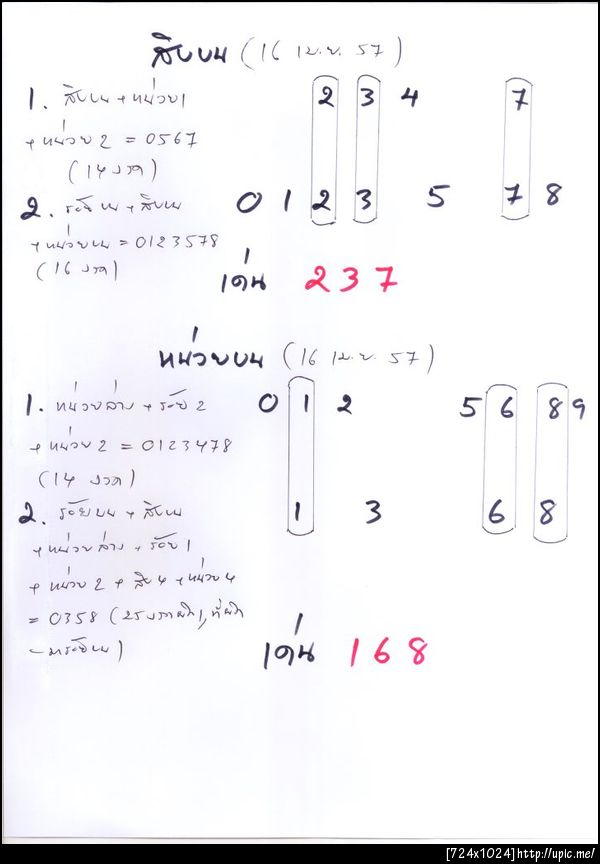 สิบบน (16 เม.ย. 57)
1. สิบบน + หน่วย 1
+ หน่วย 2 = 0567
(14 งวด)
2 3 4 7
2. ร้อยบน + สิบบน
+ หน่วยบน = 0123578
(16 งวด)
0 1 2 3 5 7 8
เด่น 2 3 7
หน่วยบน (16 เม.ย. 57)
1. หน่วยล่าง + ร้อย 2
+ หน่วย 2 = 0123478
(14 งวด)
0 1 2 5 6 8 9
2. ร้อยบน + สิบบน
+ หน่วยล่าง + ร้อย 1
+ หน่วย 2 + สิบ 4 + หน่วย 4
= 0358 (25 งวดผิด 1, ที่ผิด
มาร้อยบน)
1 3 6 8
เด่น 1 6 8
[724x1024]http://upic.me/